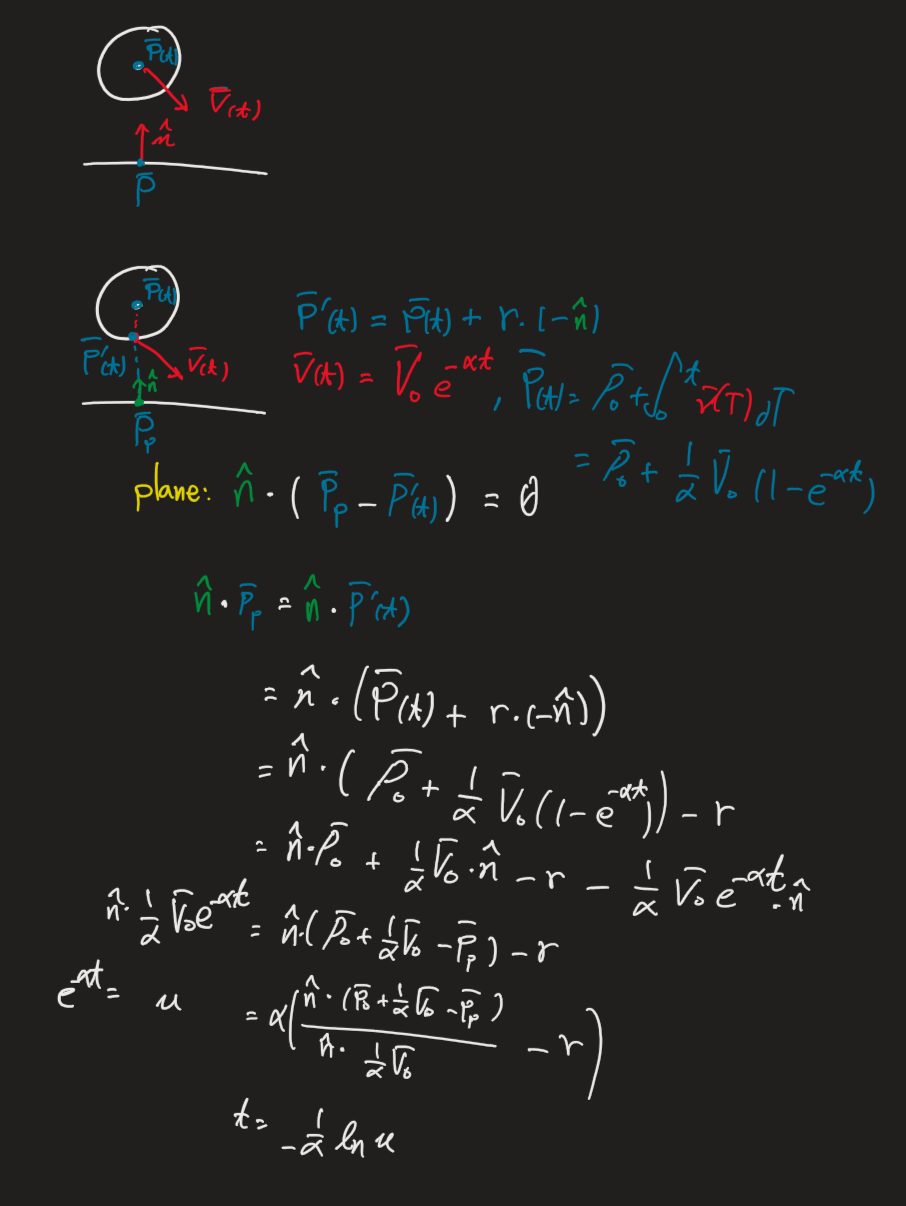 P̄(t)
V̄(t)
n̂
P̄
P̄(t)
P̄'(t) = P̄(t) + r·(-n̂)
P̄'(t)
V̄(t)
V̄(t) = V̄₀ e^{-αt}, P̄(t) = P̄₀ + ∫₀^t v̄(T) dT
n̂
P̄ₚ
= P̄₀ + 1/α V̄₀ (1 - e^{-αt})
plane: n̂ · ( P̄ₚ - P̄'(t) ) = 0
n̂ · P̄ₚ = n̂ · P̄'(t)
= n̂ · (P̄(t) + r·(-n̂))
= n̂ · ( P̄₀ + 1/α V̄₀ (1 - e^{-αt})) - r
= n̂·P̄₀ + 1/α V̄₀·n̂ - r - 1/α V̄₀ e^{-αt}·n̂
n̂· 1/α V̄₀e^{-αt} = n̂·( P̄₀ + 1/α V̄₀ - P̄ₚ ) - r
e^{-αt} = u = α( n̂ · (P̄₀ + 1/α V̄₀ - P̄ₚ) / n̂ · 1/α V̄₀ - r )
t = -1/α ln u